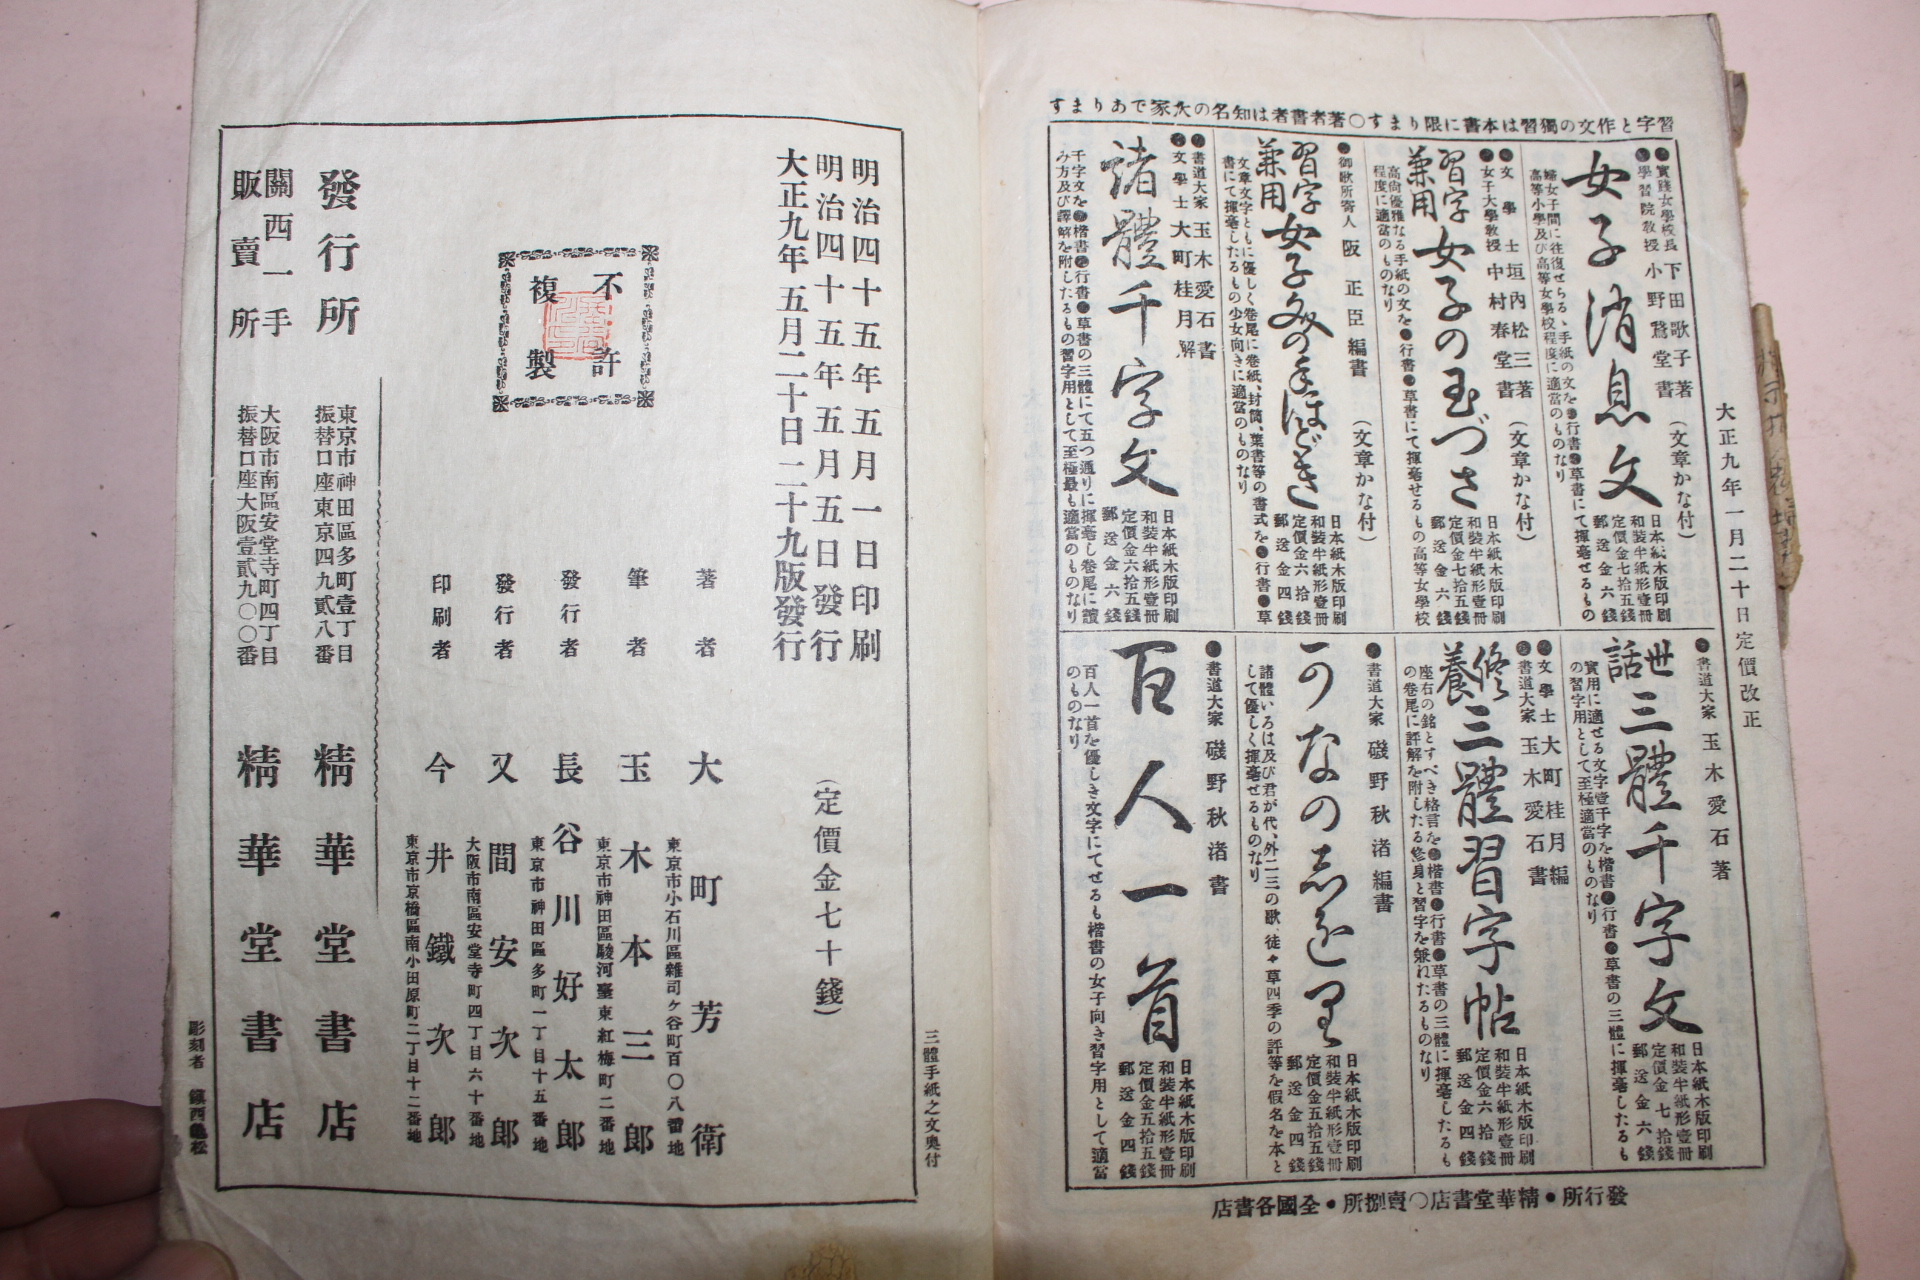 大正九年一月二十日定價改正
習字と作文の獨習は本書に限ります〇著者書者は知名の大家であります
●實踐女學校長 下田歌子著
●學習院教授 小野鵞堂書
(文章かな付)
女子消息文
日本紙木版印刷
和裝半紙形壹冊
定價金七拾五錢
郵送金六錢
婦女子間に往復せらるゝ手紙の文を●行書●草書にて揮毫せるもの
高等小學及び高等女學校程度に適當のものなり
●文學士 垣內松三著
●女子大學教授 中村春堂書
(文章かな付)
習字兼用 女子の玉づさ
日本紙木版印刷
和裝半紙形壹冊
定價金七拾五錢
郵送金六錢
高尙優雅なる手紙の文を●行書●草書にて揮毫せるもの高等女學校
程度に適當のものなり
●御歌所寄人 阪正臣編書
(文章かな付)
習字兼用 女子文の手ほどき
日本紙木版印刷
和裝半紙形壹冊
定價金六拾錢
郵送金四錢
文章文字ともに優しく卷尾に卷紙、封筒、葉書等の書式を●行書●草
書にて揮毫したるもの少女向きに適當のものなり
●書道大家 玉木愛石書
●文學士 大町桂月解
諸體千字文
日本紙木版印刷
和裝半紙形壹冊
定價金六拾五錢
郵送金六錢
千字文を●楷書●行書●草書の三體にて五つ通りに揮毫し卷尾に讀
み方及び譯解を附したるもの習字用として至極最も適當のものなり
●書道大家 玉木愛石著
世話 三體千字文
日本紙木版印刷
和裝半紙形壹冊
定價金七拾錢
郵送金六錢
實用に適せる文字壹千字を楷書●行書●草書の三體に揮毫したるも
の習字用として至極適當のものなり
●文學士 大町桂月編
●書道大家 玉木愛石書
修養 三體習字帖
日本紙木版印刷
和裝半紙形壹冊
定價金六拾錢
郵送金四錢
座右の銘とすべき格言を●楷書●行書●草書の三體に揮毫したるも
の卷尾に評解を附したる修身と習字を兼ねたるものなり
●書道大家 磯野秋渚編書
かなのしをり
日本紙木版印刷
和裝半紙形壹冊
定價金五拾五錢
郵送金四錢
諸體いろは及び君が代、外二三の歌、徒々草四季の評等を假名を本と
して優しく揮毫せるものなり
●書道大家 磯野秋渚書
百人一首
日本紙木版印刷
和裝半紙形壹冊
定價金五拾五錢
郵送金四錢
百人一首を優しき文字にてせるも楷書の女子向き習字用として適當
のものなり
發行所●精華堂書店〇賣捌所●全國各書店
三體手紙之文奧付
明治四十五年五月一日印刷
明治四十五年五月五日發行
大正九年五月二十日二十九版發行
(定價金七十錢)
不許
複製
著者 大町芳衛
東京市小石川區雜司ヶ谷町百〇八番地
筆者 玉木本三郎
東京市神田區駿河臺東紅梅町二番地
發行者 長谷川好太郎
東京市神田區多町一丁目十五番地
發行者 又間安次郎
大阪市南區安堂寺町四丁目六十番地
印刷者 今井鐵次郎
東京市京橋區南小田原町二丁目十二番地
發行所
東京市神田區多町壹丁目
振替口座東京四九貳八番
精華堂書店
關西一手
販賣所
大阪市南區安堂寺町四丁目
振替口座大阪壹貳九〇〇番
精華堂書店
彫刻者 鎮西龜松